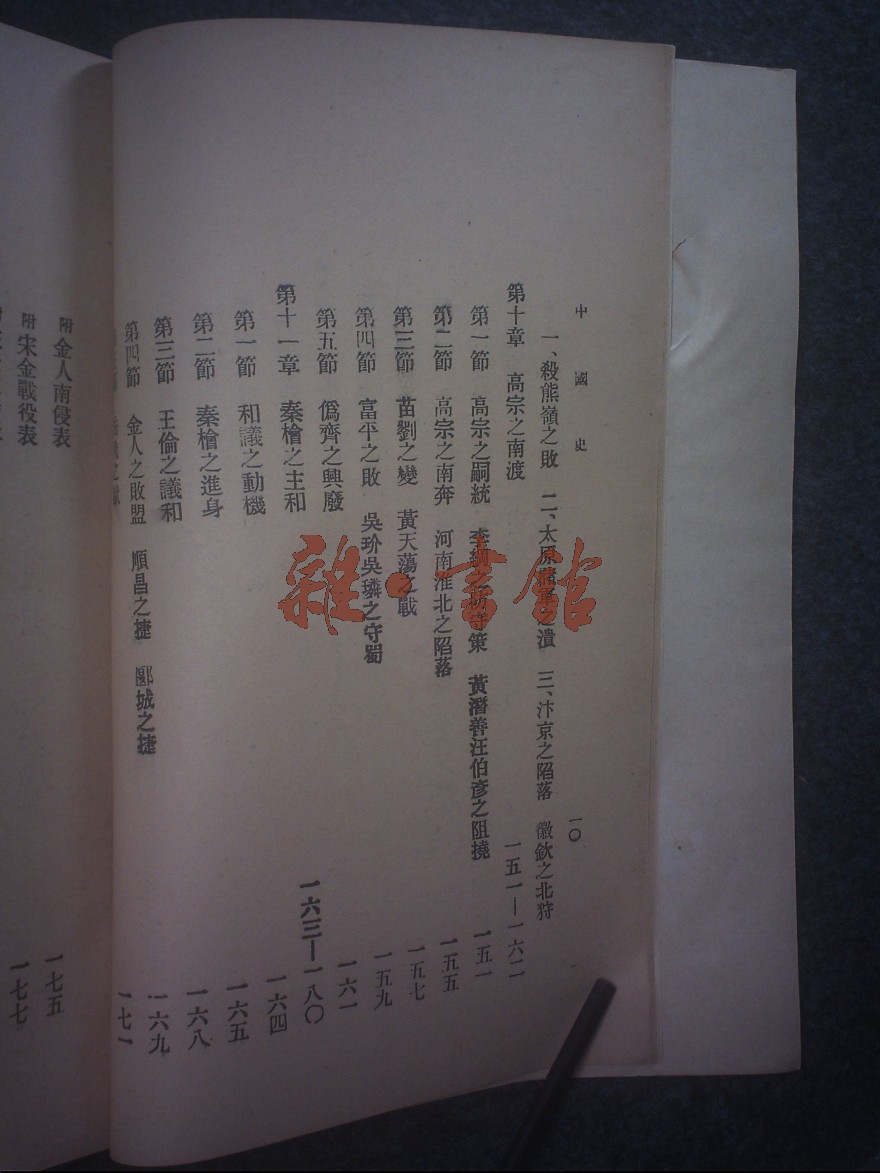 中國史 一〇
一、殺熊嶺之敗 二、太原之潰 三、汴京之陷落 徽欽之北狩
第十章 高宗之南渡 一五一—一六二
第一節 高宗之嗣統 李綱之防守策 黃潛善汪伯彥之阻撓 一五一
第二節 高宗之南奔 河南淮北之陷落 一五五
第三節 苗劉之變 黃天蕩之戰 一五七
第四節 富平之敗 吳玠吳璘之守蜀 一五九
第五節 僞齊之興廢 一六一
第十一章 秦檜之主和 一六三—一八〇
第一節 和議之動機 一六四
第二節 秦檜之進身 一六五
第三節 王倫之議和 一六八
第四節 金人之敗盟 順昌之捷 郾城之捷 一六九
一七一
附 金人南侵表 一七五
附 宋金戰役表 一七七
雜·書館